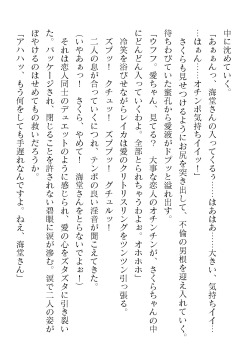 中に沈めていく。
「あぁぁっ、海堂さんの入ってくるぅ……はぁはぁ……大きい、気持ちイイッ！
……はぁん……オチンポ気持ちイイイーッ」
さくらも見せつけるように尻を突き出して、不倫の男根を迎え入れていく。
待ちわびていた蜜孔から愛液がドプッと溢れ出す。
「ウフフ、愛ちゃん、見てる？　大事な恋人のオチンチンが、さくらちゃんの中
にどんどん入っていくわよ。全部とられちゃうわねぇ。オホホホ」
冷笑を浴びせながらレイカは愛のクリトリスリングをツンツン引っ張る。
ズブッ！　クチュッ！　ズブッ！　グチュルッ！
二人の息が合っていくにつれ、テンポの良い淫音が聞こえてきた。
（いやあぁっ！　さくら、やめて！　海堂さんをとらないでよぉ！）
それは恋人同士のデュエットのように感じられ、愛の心をズタズタに引き裂い
た。パッケージされ、閉じることを許されない碧眼に涙が滲む。涙で二人の姿が
ぼやけるのはせめてもの救いだろうか。
「アハハッ、もう何をしても手遅れなんですよ。ねえ、海堂さん！」